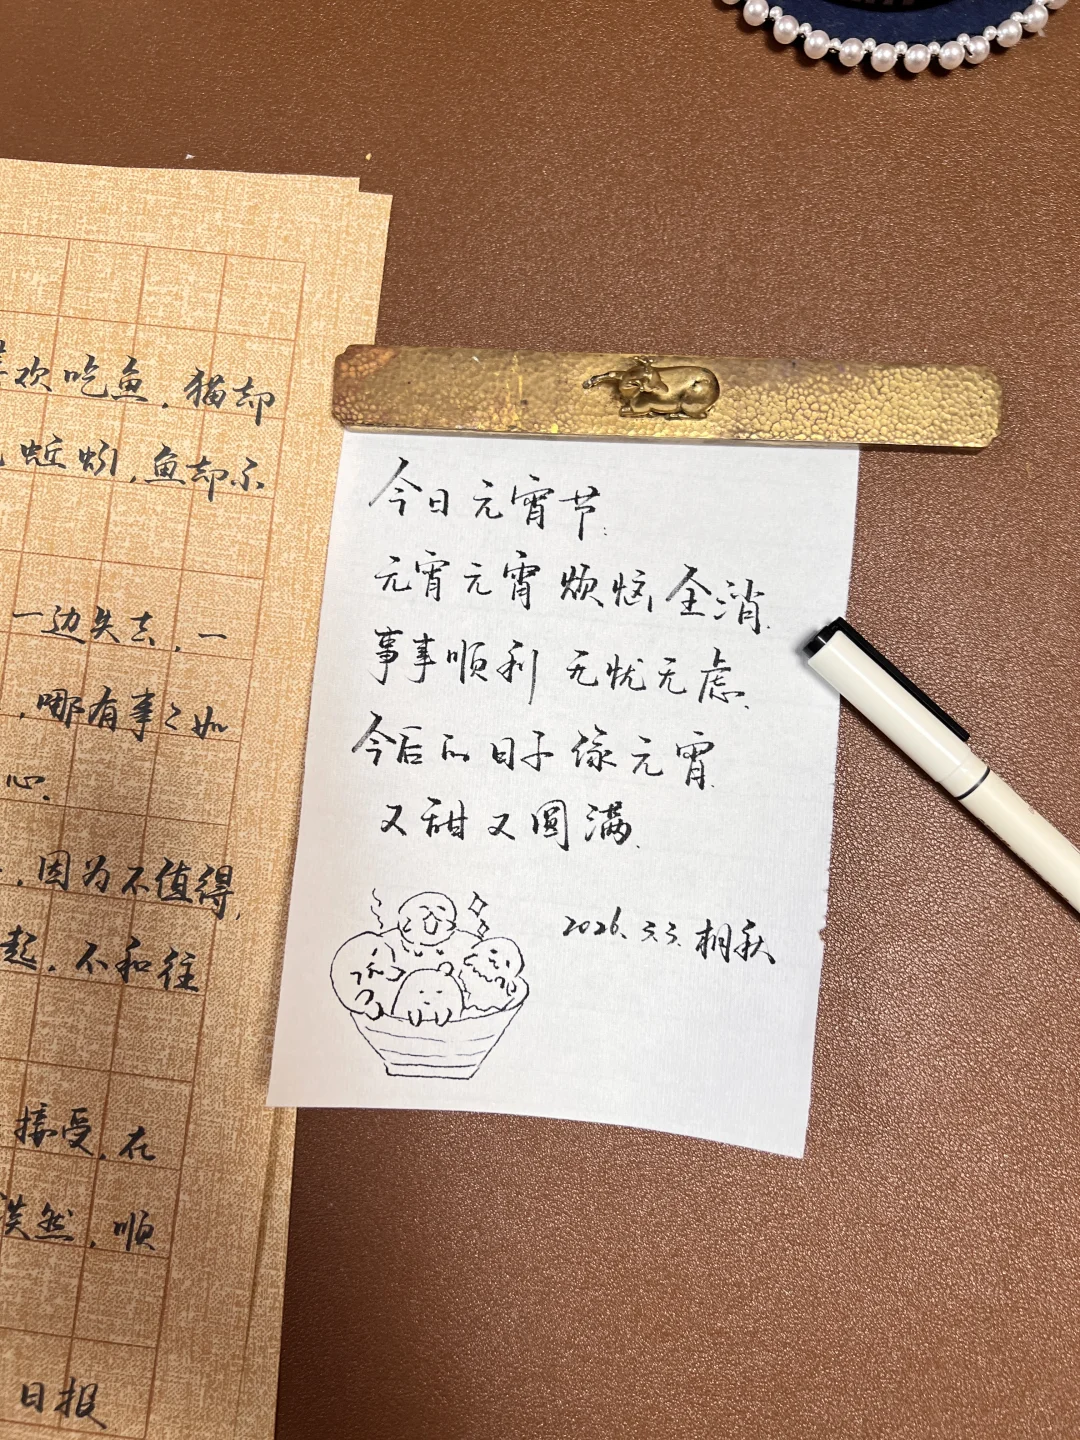 欢吃鱼，猫却
蚯蚓，鱼却不
一边失去，一
，哪有事事如
心.
，因为不值得，
起，不和往
接受，在
淡然，顺
日报
今日元宵节.
元宵元宵 烦恼全消.
事事顺利 无忧无虑.
今后的日子像元宵.
又甜又圆满.
2026.3.3. 桐秋